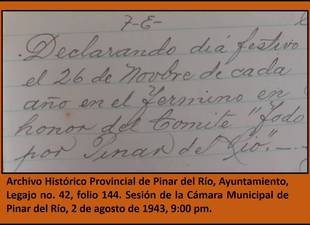 7-E-
Declarando diá festivo
el 26 de Novbre de cada
año en el Termino en
honor del Comite "Todo
por Pinar del Río".-
Archivo Histórico Provincial de Pinar del Río, Ayuntamiento,
Legajo no. 42, folio 144. Sesión de la Cámara Municipal de
Pinar del Río, 2 de agosto de 1943, 9:00 pm.